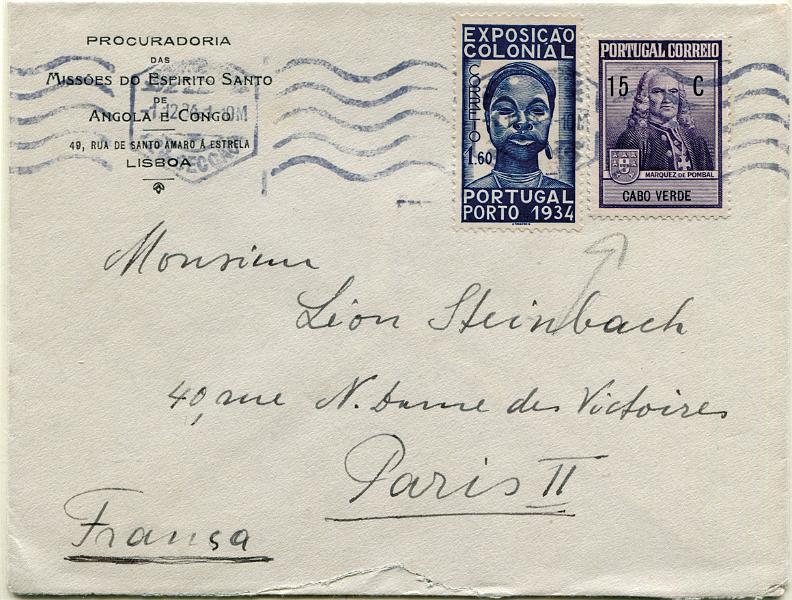 PROCURADORIA
DAS
MISSÕES DO ESPIRITO SANTO
DE
ANGOLA E CONGO
49, RUA DE SANTO AMARO Á ESTRELA
LISBOA
EXPOSIÇÃO
COLONIAL
CORREIO
1.60
PORTUGAL
PORTO 1934
PORTUGAL CORREIO
15 C
MARQUEZ DE POMBAL
CABO VERDE
Monsieur
Léon Steinbach
40, rue N. Dame des Victoires
Paris II
França